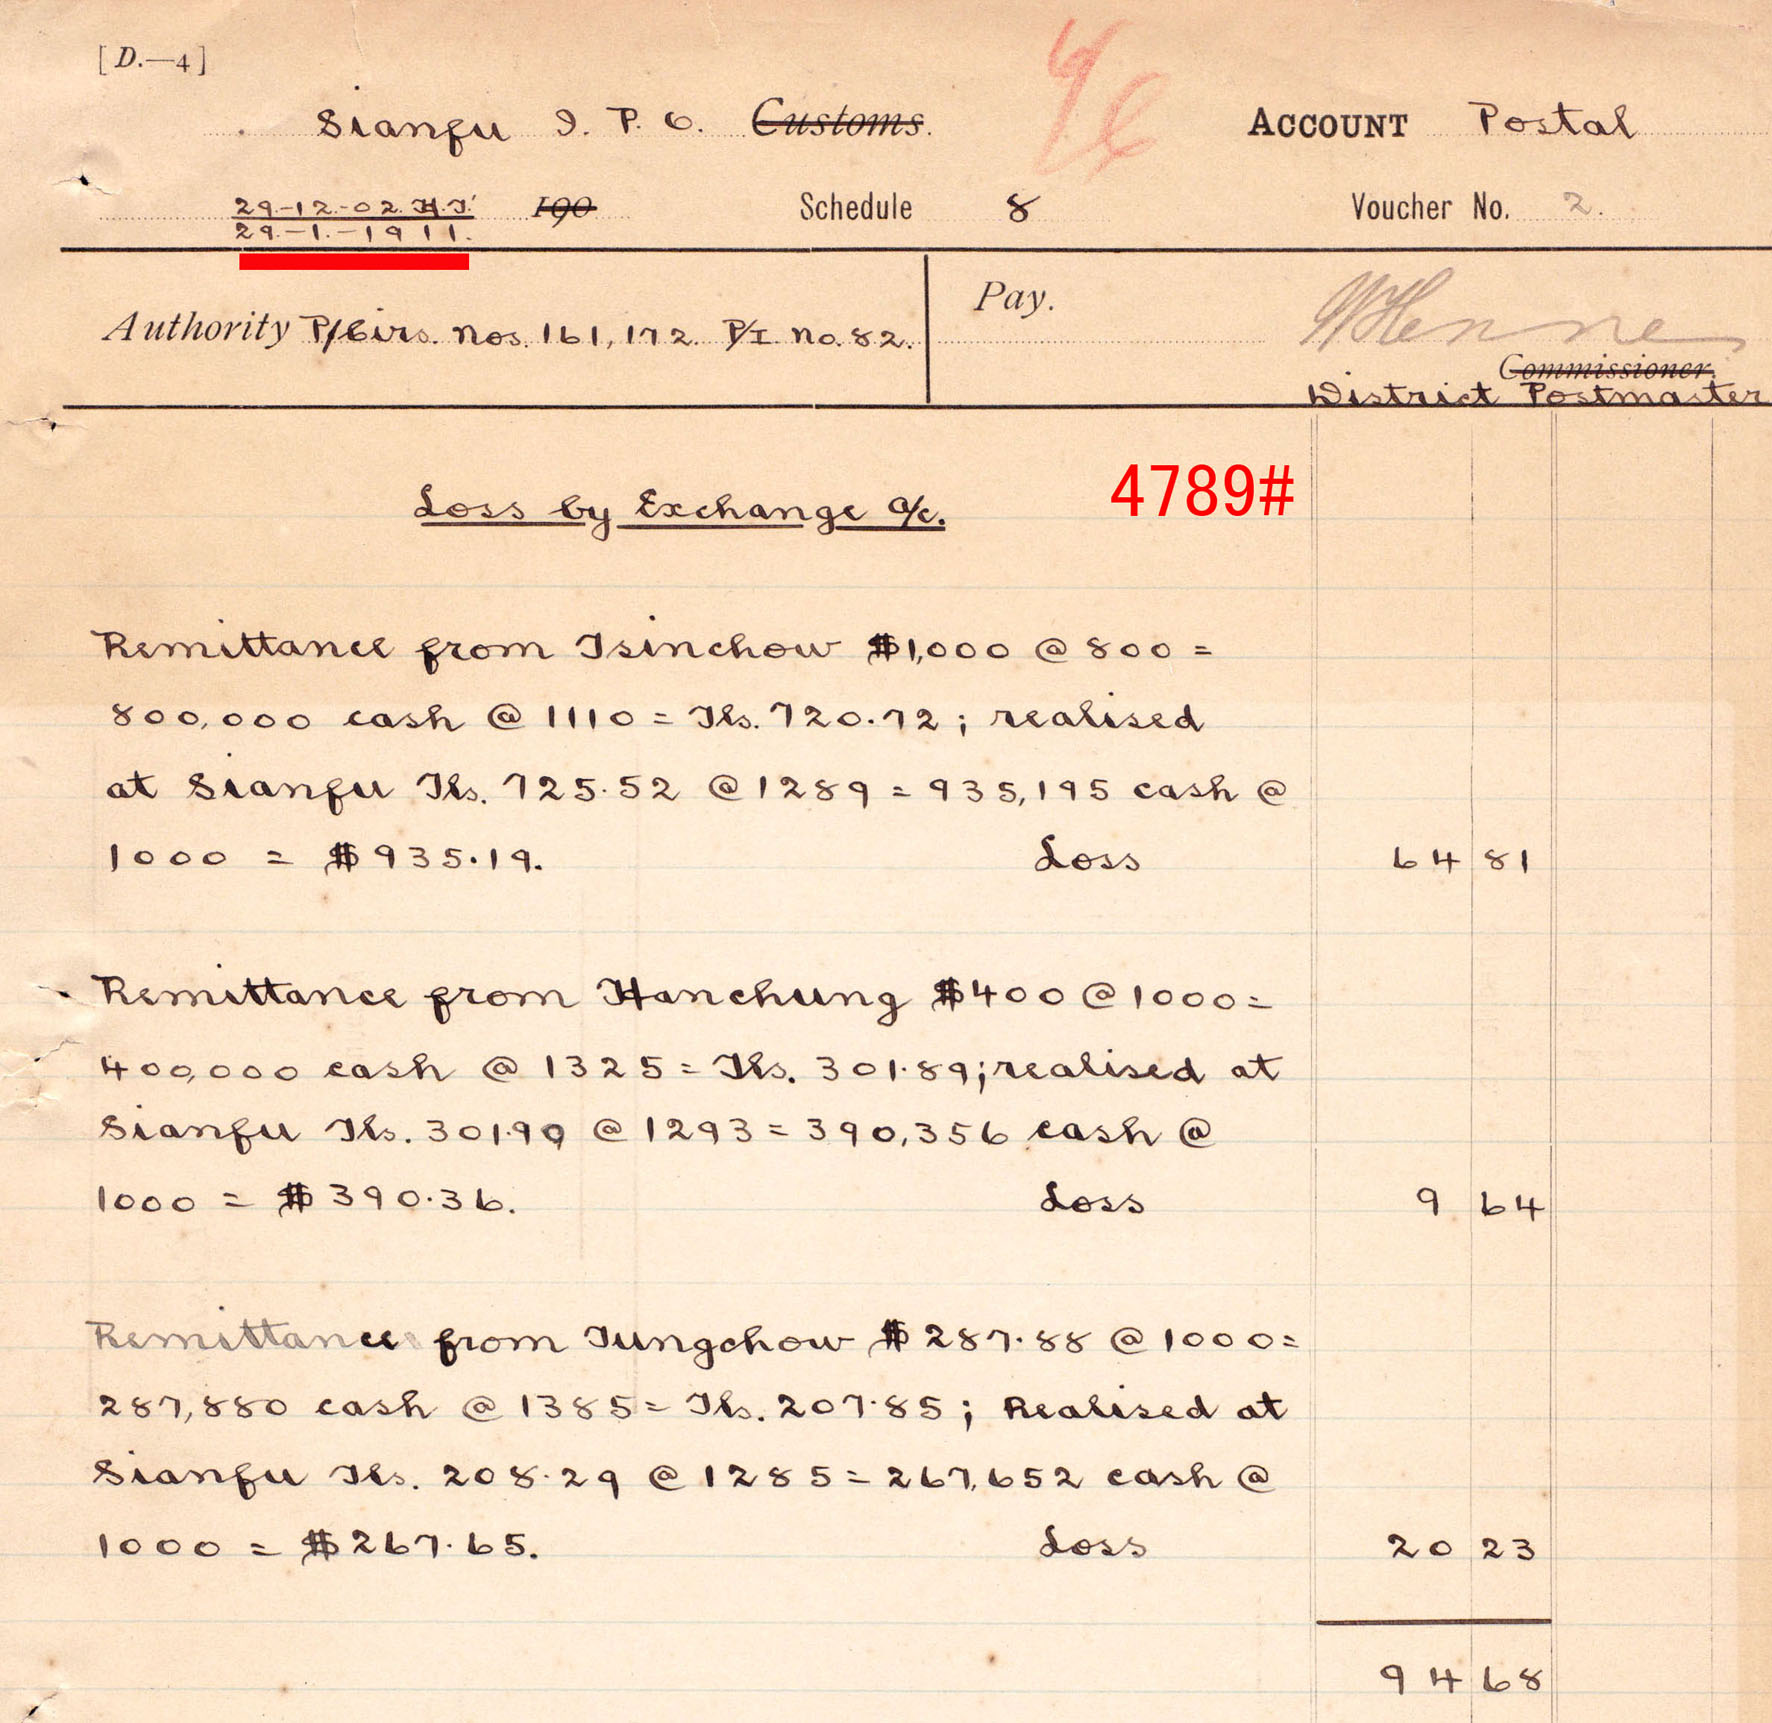 [D.—4]
Sianfu I. P. O. Customs. ACCOUNT Postal
29.-12.-02. H.T. 190 Schedule 8 Voucher No. 2.
29.-1.-1911.
Authority P/Circs. Nos. 161, 172. P/I No. 82. Pay.
Commissioner.
District Postmaster
4789#
Loss by Exchange a/c.
Remittance from Tsinchow $1,000 @ 800 =
800,000 cash @ 1110 = Tls. 720.72; realised
at Sianfu Tls. 725.52 @ 1289 = 935,195 cash @
1000 = $935.19. Loss 64 81
Remittance from Hanchung $400 @ 1000=
400,000 cash @ 1325 = Tls. 301.89; realised at
Sianfu Tls. 301.90 @ 1293 = 390,356 cash @
1000 = $390.36. Loss 9 64
Remittance from Tungchow $287.88 @ 1000=
287,880 cash @ 1385 = Tls. 207.85; Realised at
Sianfu Tls. 208.29 @ 1285 = 267,652 cash @
1000 = $267.65. Loss 20 23
94 68